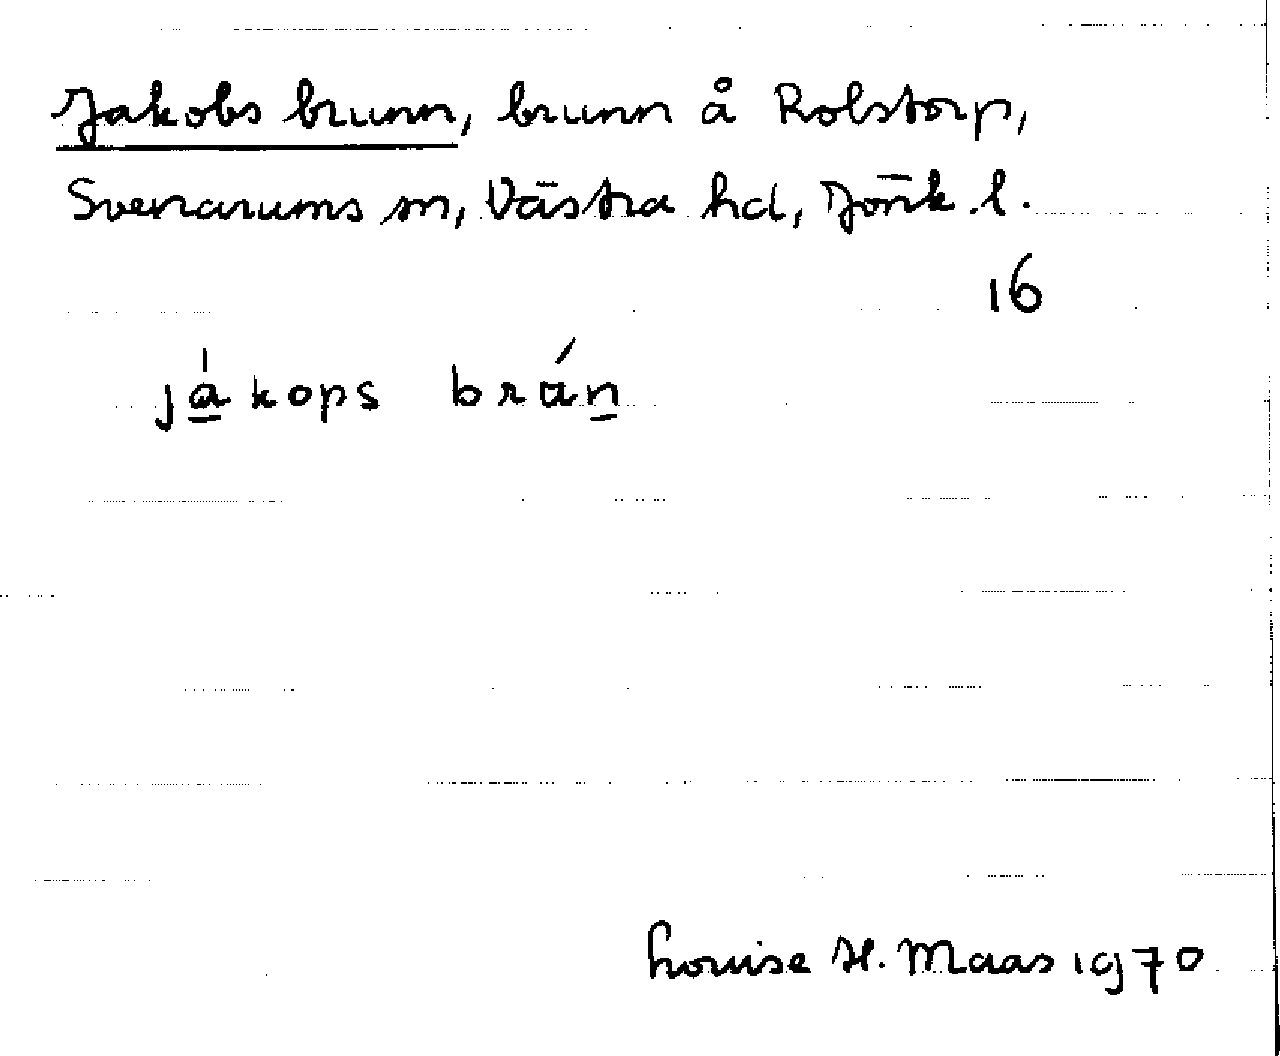 Jakobs brunn, brunn å Rolstorp,
Svenarums sn, Västra hd, Jönk.l.
16
jákops brán
Louise H. Maas 1970